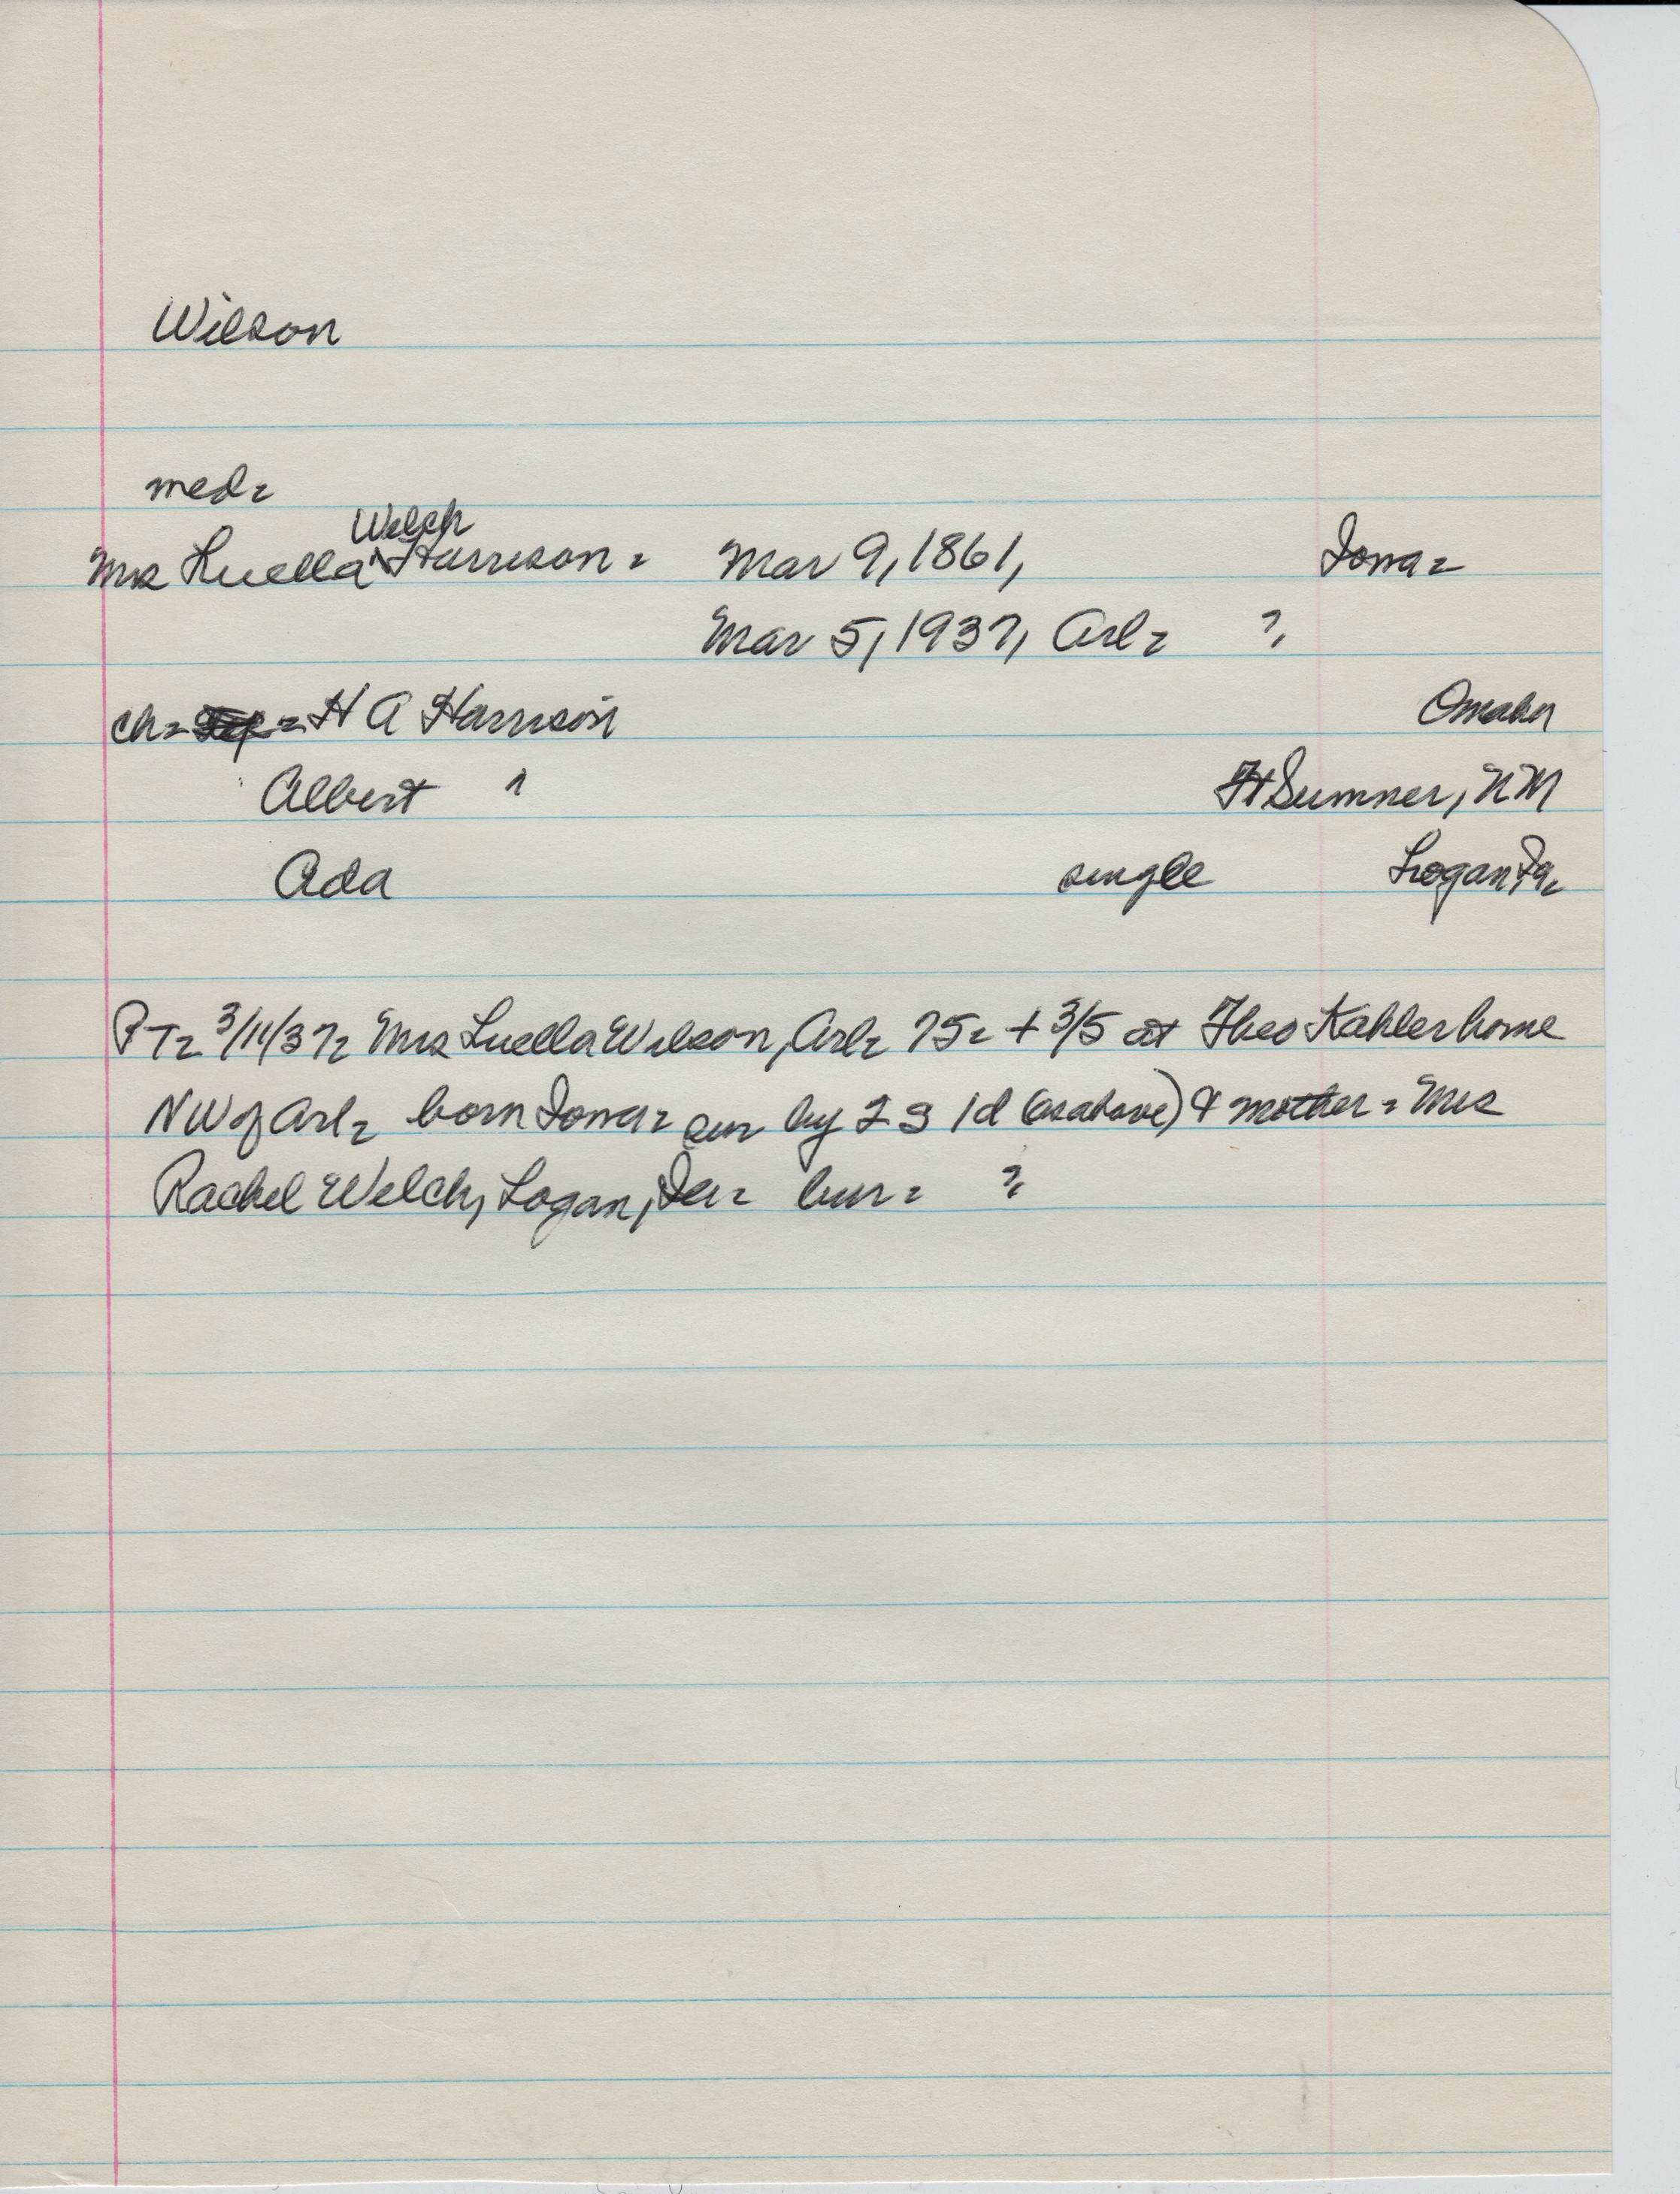 Wilson
med=
Welch
Mrs Luella ^ Harrison = Mar 9, 1861, Iowa=
Mar 5, 1937, Arl= ?
ch= = H A Harrison Omaha
Albert " Ft Sumner, NM
Ada single Logan Ia=
PT= 3/11/37= Mrs Luella Wilson, Arl= 75= + 3/5 at Theo Kahler home
NW of Arl= born Iowa= sur by 2 S 1 d (as above) & mother = Mrs
Rachel Welch, Logan, Ia= bur= ?